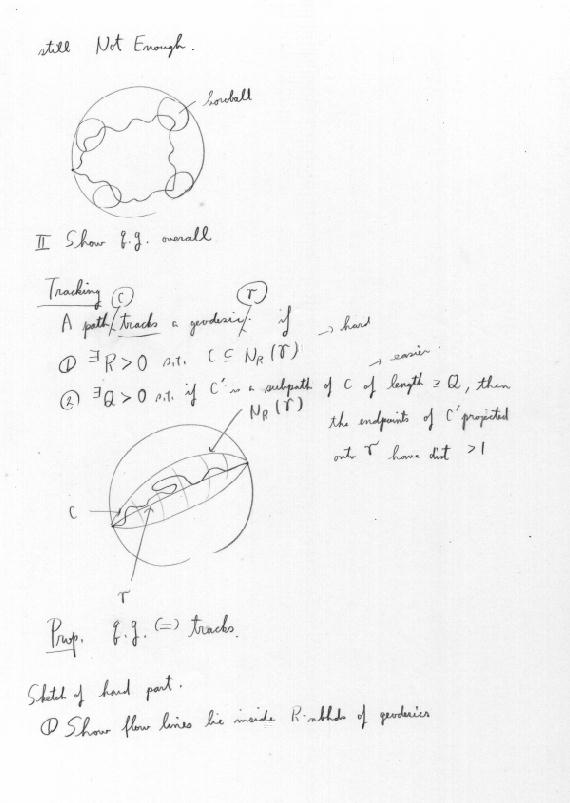 still Not Enough.
horoball
II Show q.g. overall
Tracking
C γ
A path tracks a geodesic if
① ∃R>0 s.t. C ⊆ N_R(γ) → hard
→ easier
② ∃Q>0 s.t. if C' is a subpath of C of length ≥ Q, then
the endpoints of C' projected
onto γ have dist >1
N_R(γ)
C
γ
Prop. q.g. (=) tracks.
Sketch of hard part.
① Show flow lines lie inside R-nbhds of geodesics